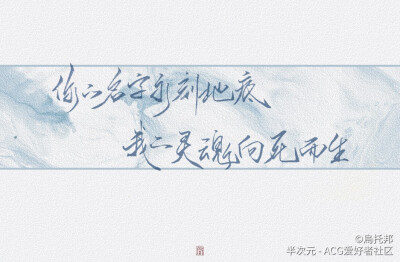 你的名字永刻地疯
我的灵魂向死而生
©烏托邦
半次元 - ACG爱好者社区